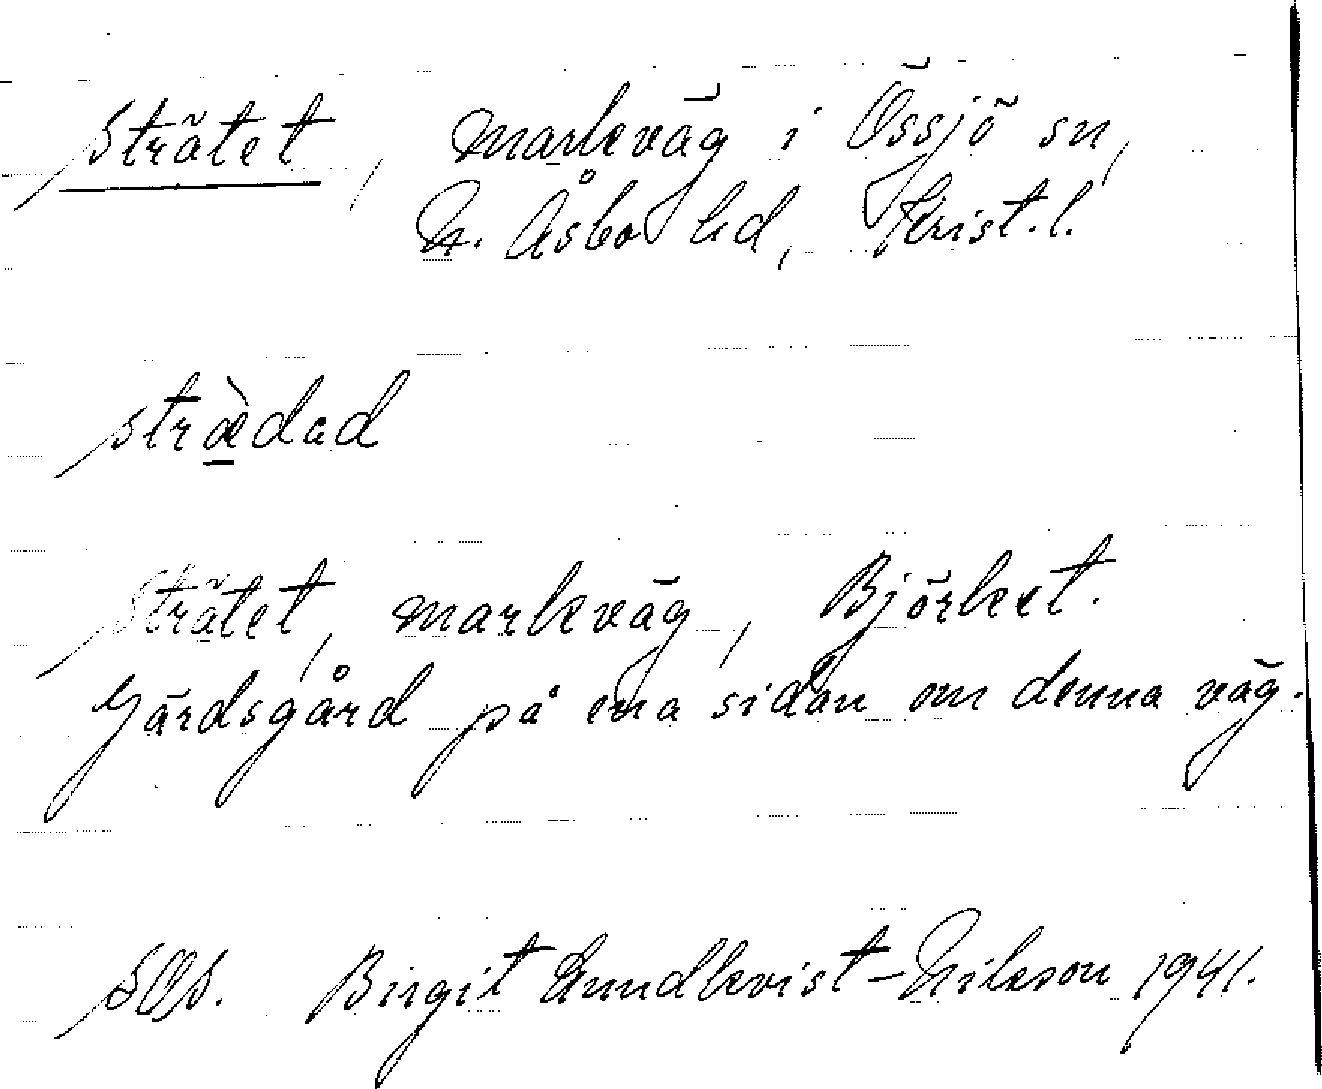 Strätet, markväg i Össjö sn,
N. Åsbo hd, Krist. l.
stræ̀dad
Strätet, markväg, Björket.
Gärdsgård på ena sidan om denna väg.
SOS. Birgit Lundkvist-Nilsson 1941.